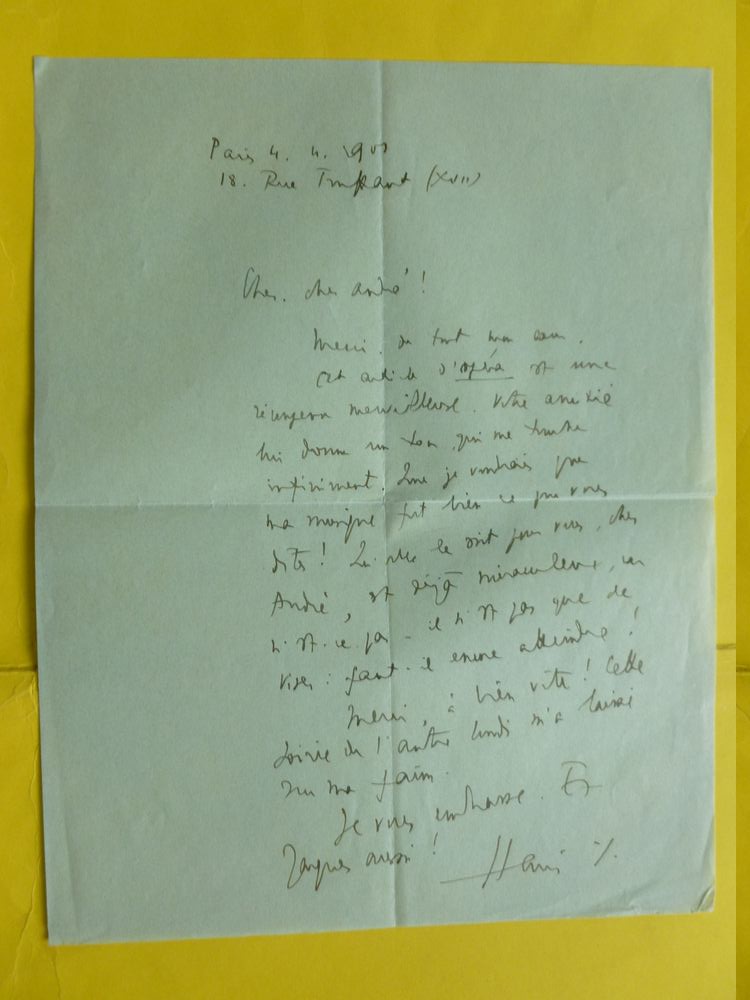 Paris 4. 4. 19
18. Rue Truffaut (XVII)
Cher, cher André !
Merci, de tout mon coeur.
Cet article d'opéra est une
récompense merveilleuse. Votre amitié
lui donne un ton qui me touche
infiniment. Que je voudrais que
ma musique fut bien ce que vous
dites ! Qu'elle le soit pour vous, cher
André, est déjà miraculeux, car
n'est-ce pas - il n'est pas que de
viser : faut-il encore atteindre !
Merci, à bien vite ! Cette
soirée de l'autre lundi m'a laissé
sur ma faim.
Je vous embrasse. Et
Jacques aussi ! Henri